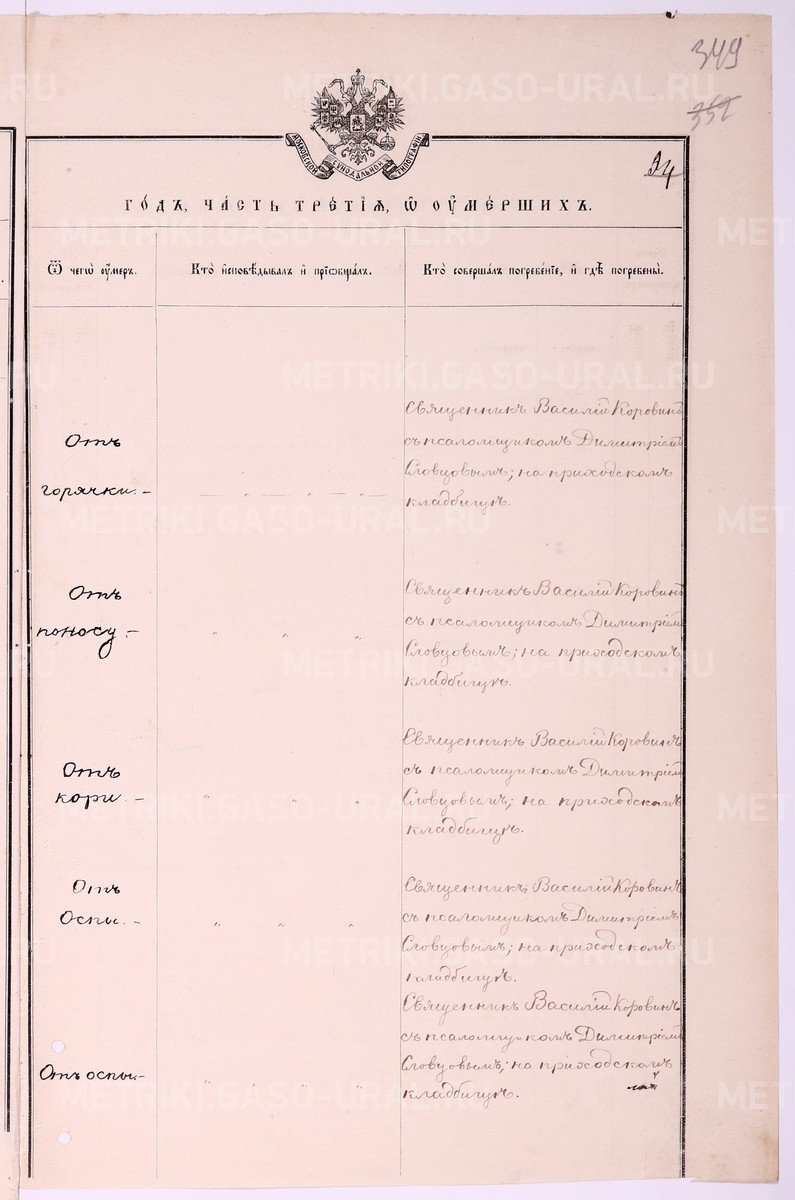 349
352
94
МОСКОВСКОЙ СУНОДАЛЬНОЙ ТИПОГРАФІИ
го́дъ, ча́сть тре́тїѧ, ѡ҆ оу҆ме́ршихъ.
Ѿ чегѡ̀ оу҆́меръ.
Кто̀ и҆сповѣ́дывалъ и҆ прїѡбща́лъ.
Кто̀ соверша́лъ погребе́нїе, и҆ гдѣ̀ погребены̀.
Отъ
горячки. –
Священникъ Василій Коровинъ
съ псаломщикомъ Димитріемъ
Словцовымъ; на приходскомъ
кладбищѣ.
Отъ
поносу –
Священникъ Василій Коровинъ
съ псаломщикомъ Димитріемъ
Словцовымъ; на приходскомъ
кладбищѣ.
Отъ
кори. –
Священникъ Василій Коровинъ
съ псаломщикомъ Димитріемъ
Словцовымъ; на приходскомъ
кладбищѣ.
Отъ
Оспы. –
Священникъ Василій Коровинъ
съ псаломщикомъ Димитріемъ
Словцовымъ; на приходскомъ
кладбищѣ.
Отъ оспы. –
Священникъ Василій Коровинъ
съ псаломщикомъ Димитріемъ
Словцовымъ; на приходскомъ
кладбищѣ.
METRIKI.GASO-URAL.RU